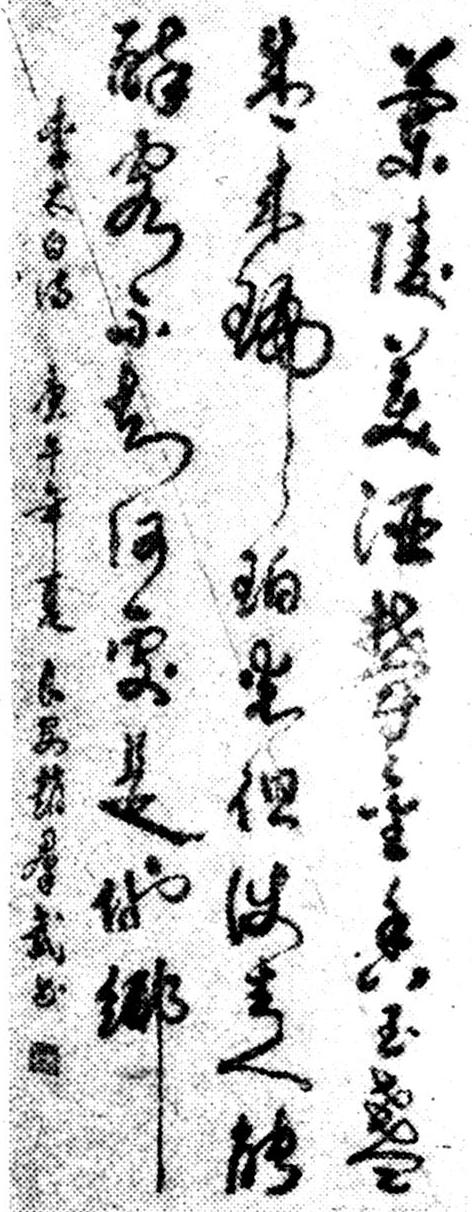 蘭陵美酒鬱金香玉盌
盛来琥珀光但使主人能
醉客不知何處是他鄉
李太白诗 庚午年夏 趙羣武书